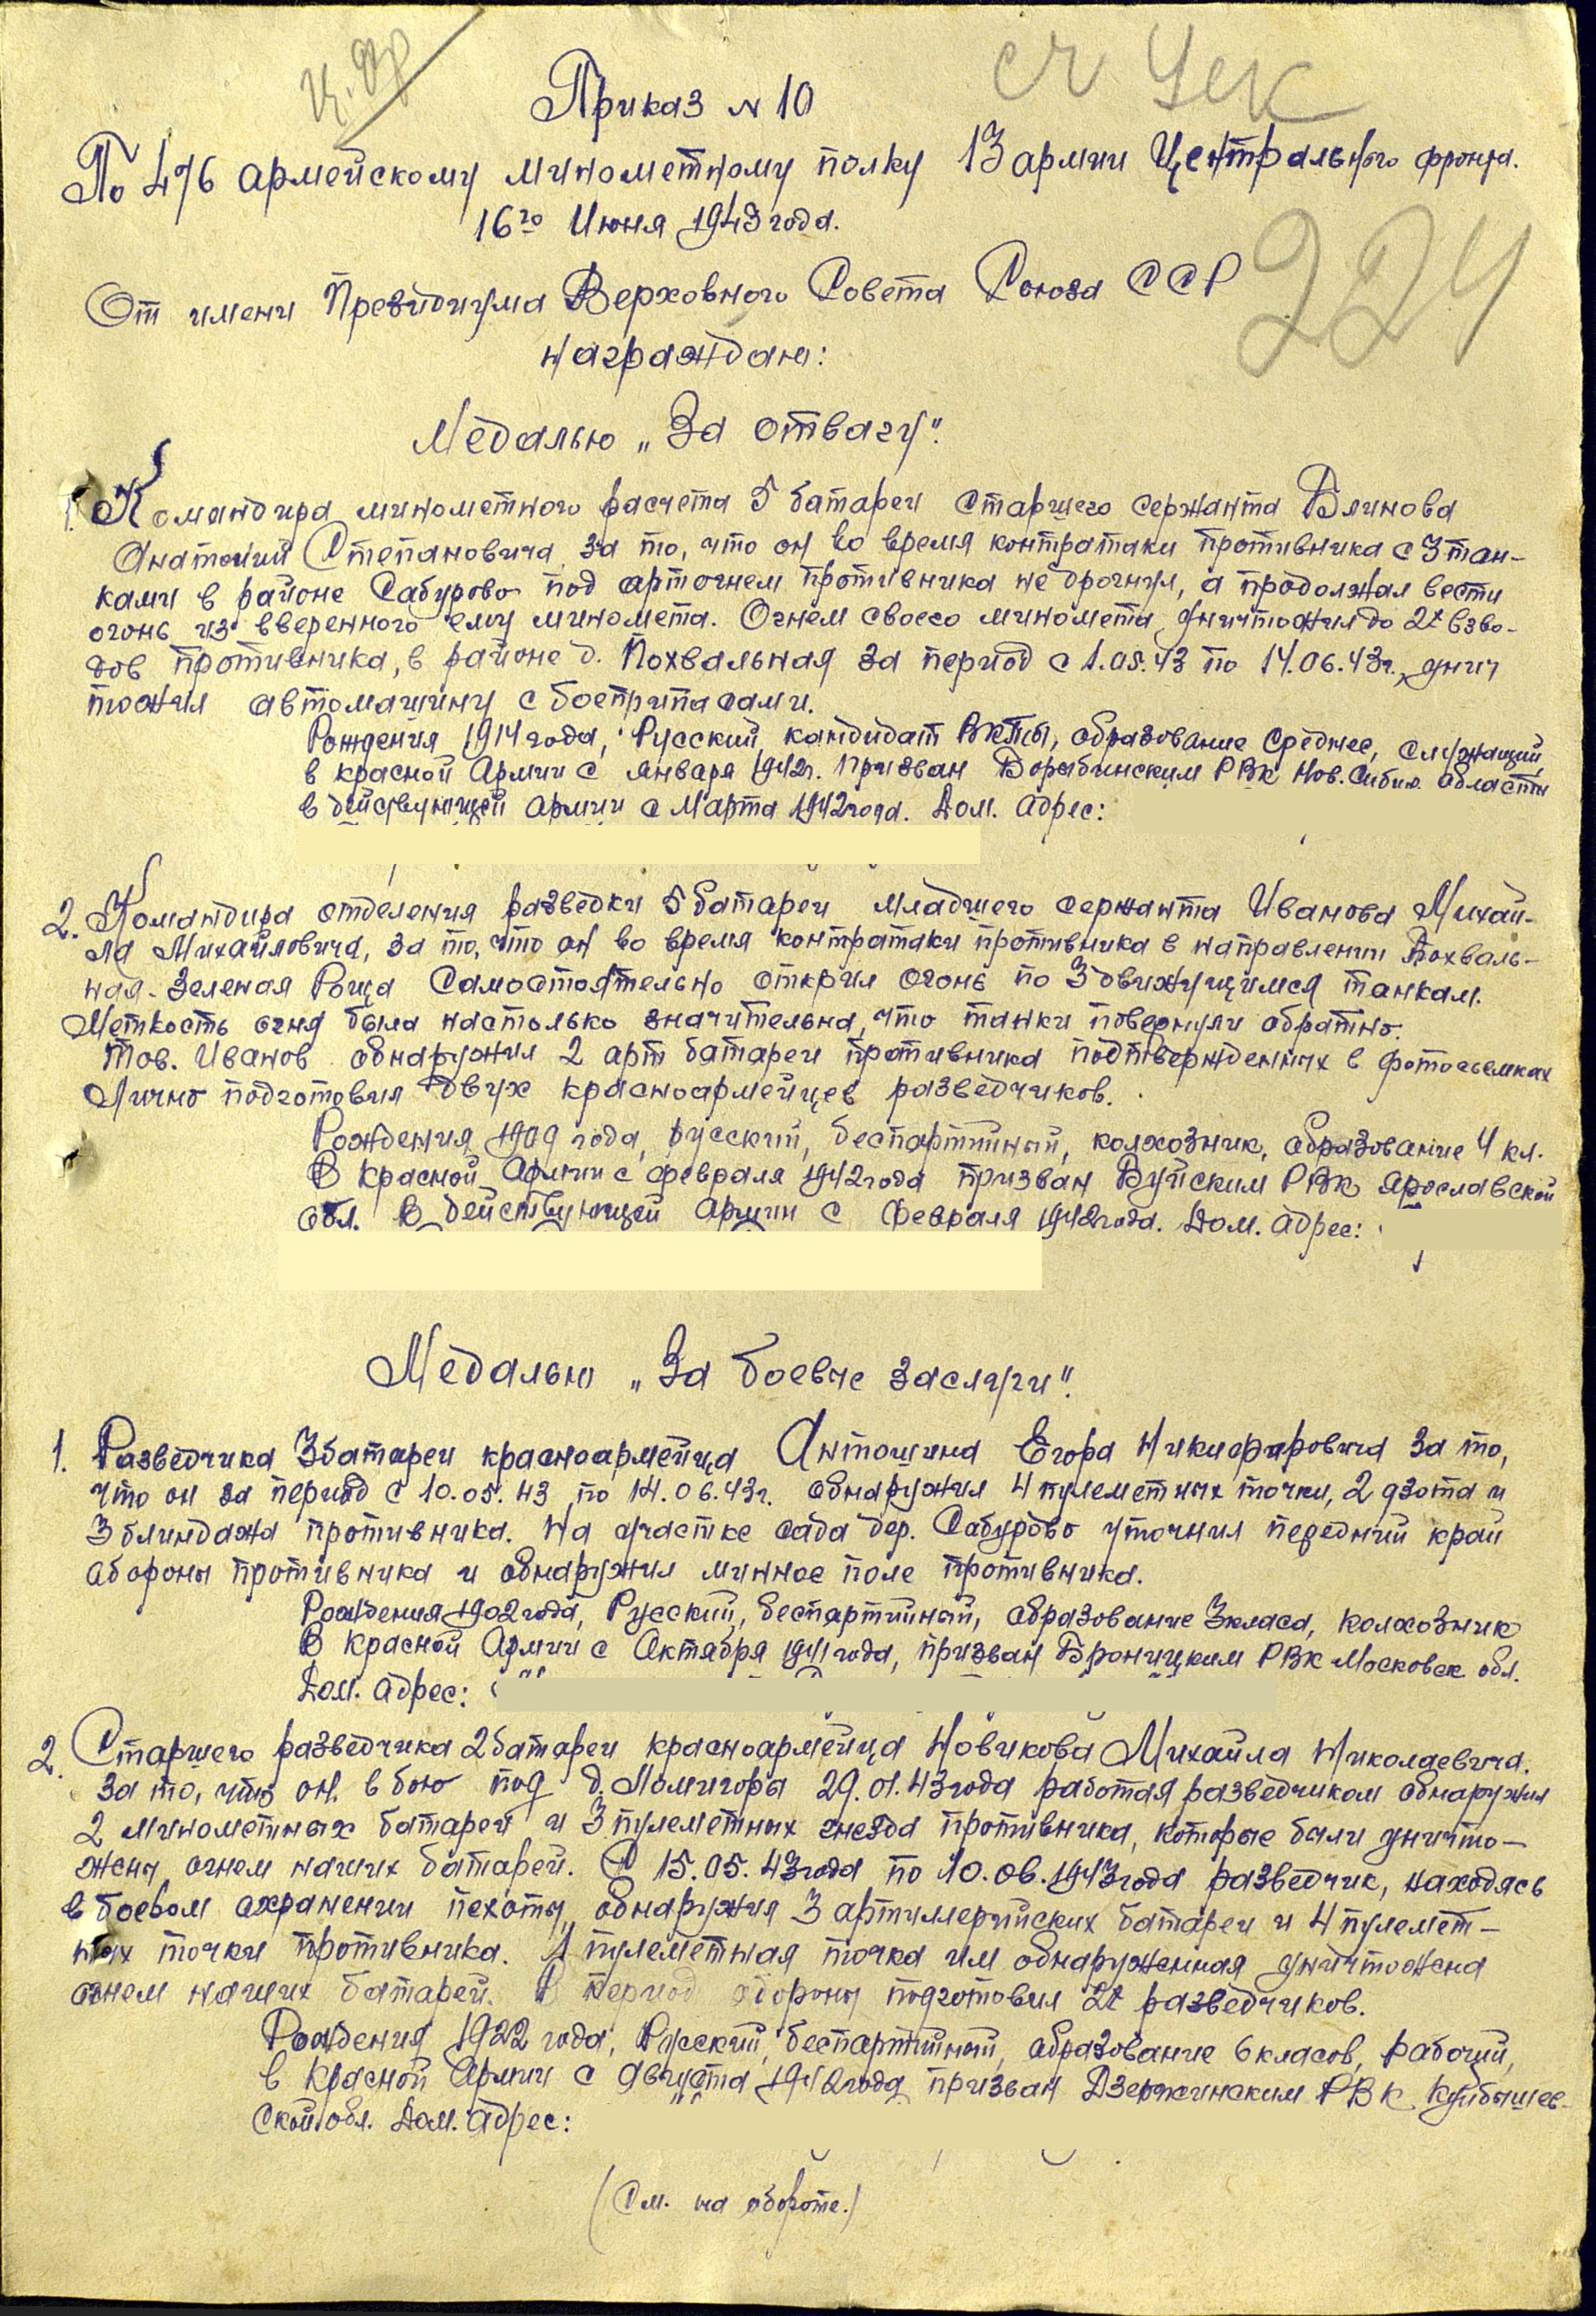 Приказ N 10
По 476 армейскому минометному полку 13 армии Центрального фронта.
16го Июня 1943 года.
224
От имени Президиума Верховного Совета Союза ССР
награждаю:
Медалью „За отвагу".
Командира минометного расчета 5 батареи старшего сержанта Блинова
Анатолия Степановича за то, что он во время контратаки противника с 3 тан-
ками в районе Сабурово под артогнем противника не дрогнул, а продолжал вести
огонь из вверенного ему миномета. Огнем своего миномета уничтожил до 2х взво-
дов противника, в районе д. Похвальная за период с 1.05.43 по 14.06.43г., унич
тожил автомашину с боеприпасами.
Рождения 1914 года, Русский, кандидат ВКП(б), образование среднее, служащий,
в красной Армии с января 1942г. Призван РВК Нов. Сибир. области
в действующей армии с Марта 1942 года. Дом. адрес:
2. Командира отделения разведки 5 батареи младшего сержанта Иванова Михаи-
ла Михайловича, за то, что он во время контратаки противника в направлении Похваль-
ная - Зеленая Роща самостоятельно открыл огонь по 3 движущимся танкам.
Меткость огня была настолько значительна, что танки повернули обратно.
Тов. Иванов обнаружил 2 арт батареи противника подтвержденных в фотосъемках
Лично подготовил двух красноармейцев разведчиков.
Рождения 1909 года, русский, беспартийный, колхозник, образование 4 кл.
В Красной Армии с февраля 1942 года призван РВК Ярославской
обл. В действующей армии с Февраля 1942 года. Дом. адрес:
Медалью „За боевые заслуги".
1. Разведчика 3 батареи красноармейца Антошина Егора Никифоровича за то,
что он за период с 10.05.43 по 14.06.43г. обнаружил 4 пулеметных точки, 2 дзота и
3 блиндажа противника. На участке сада дер. Сабурово уточнил передний край
обороны противника и обнаружил минное поле противника.
Рождения 1902 года, Русский, беспартийный, образование 3 класа, колхозник
В Красной Армии с Октября 1941 года, призван Бронницким РВК Московск обл.
Дом. адрес:
2. Старшего разведчика 2 батареи красноармейца Новикова Михаила Николаевича.
За то, что он. в бою под д. Ломигоры 29.01.43 года работая разведчиком обнаружил
2 минометных батареи и 3 пулеметных гнезда противника, которые были уничто-
жены огнем наших батарей. С 15.05.43 года по 10.06.1943 года разведчик, находясь
в боевом охранении пехоты, обнаружил 3 артиллерийских батареи и 4 пулемет-
ных точки противника. 1 пулеметная точка им обнаруженная уничтожена
огнем наших батарей. В период обороны подготовил 2х разведчиков.
Рождения 1922 года, Русский, беспартийный, образование 6 класов, рабочий,
в Красной Армии с августа 1942 года призван Дзержинским РВК Куйбышев-
ской обл. Дом. адрес:
(См. на обороте.)